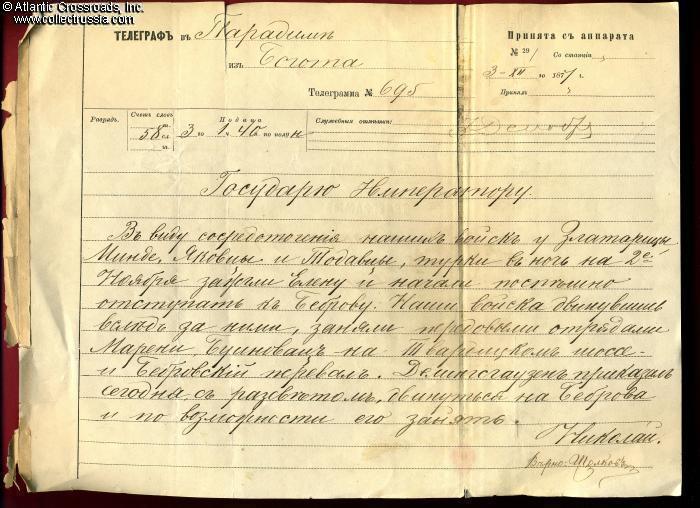 © Atlantic Crossroads, Inc.
www.collectrussia.com
ТЕЛЕГРАФЪ въ Парадимъ
изъ Богота
Телеграмма № 695
Принята съ аппарата
№ 291 Со станціи
3-XII го 1877 г.
Принялъ
Разрядъ. Счетъ словъ 58 Подача 3 го 1 ч. 40 по полун Служебныя отмѣтки:
Государю Императору.
Въ виду сосредоточенія нашихъ войскъ у Златарицы
Минде, Яковцы и Тодавцы, турки въ ночь на 2е
Ноября зажгли Елену и начали поспѣшно
отступать къ Беброву. Наши войска двинувшись
вслѣдъ за ними, заняли передовыми отрядами
Марени Буиновацъ на Твардицкомъ шоссе
и Бебровскій перевалъ. Делинсгаузенъ приказалъ
сегодня, съ разсвѣтомъ, двинуться на Беброва
и по возможности его занять.
Николай.
Вѣрно: